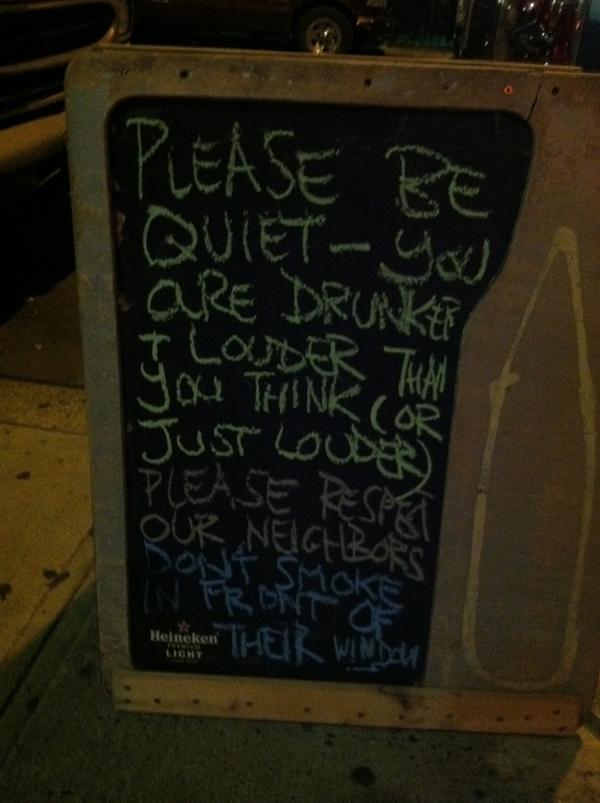 PLEASE BE
QUIET - YOU
ARE DRUNKER
+ LOUDER THAN
YOU THINK (OR
JUST LOUDER)
PLEASE RESPECT
OUR NEIGHBORS
DON'T SMOKE
IN FRONT OF
THEIR WINDOW
Heineken
PREMIUM
LIGHT